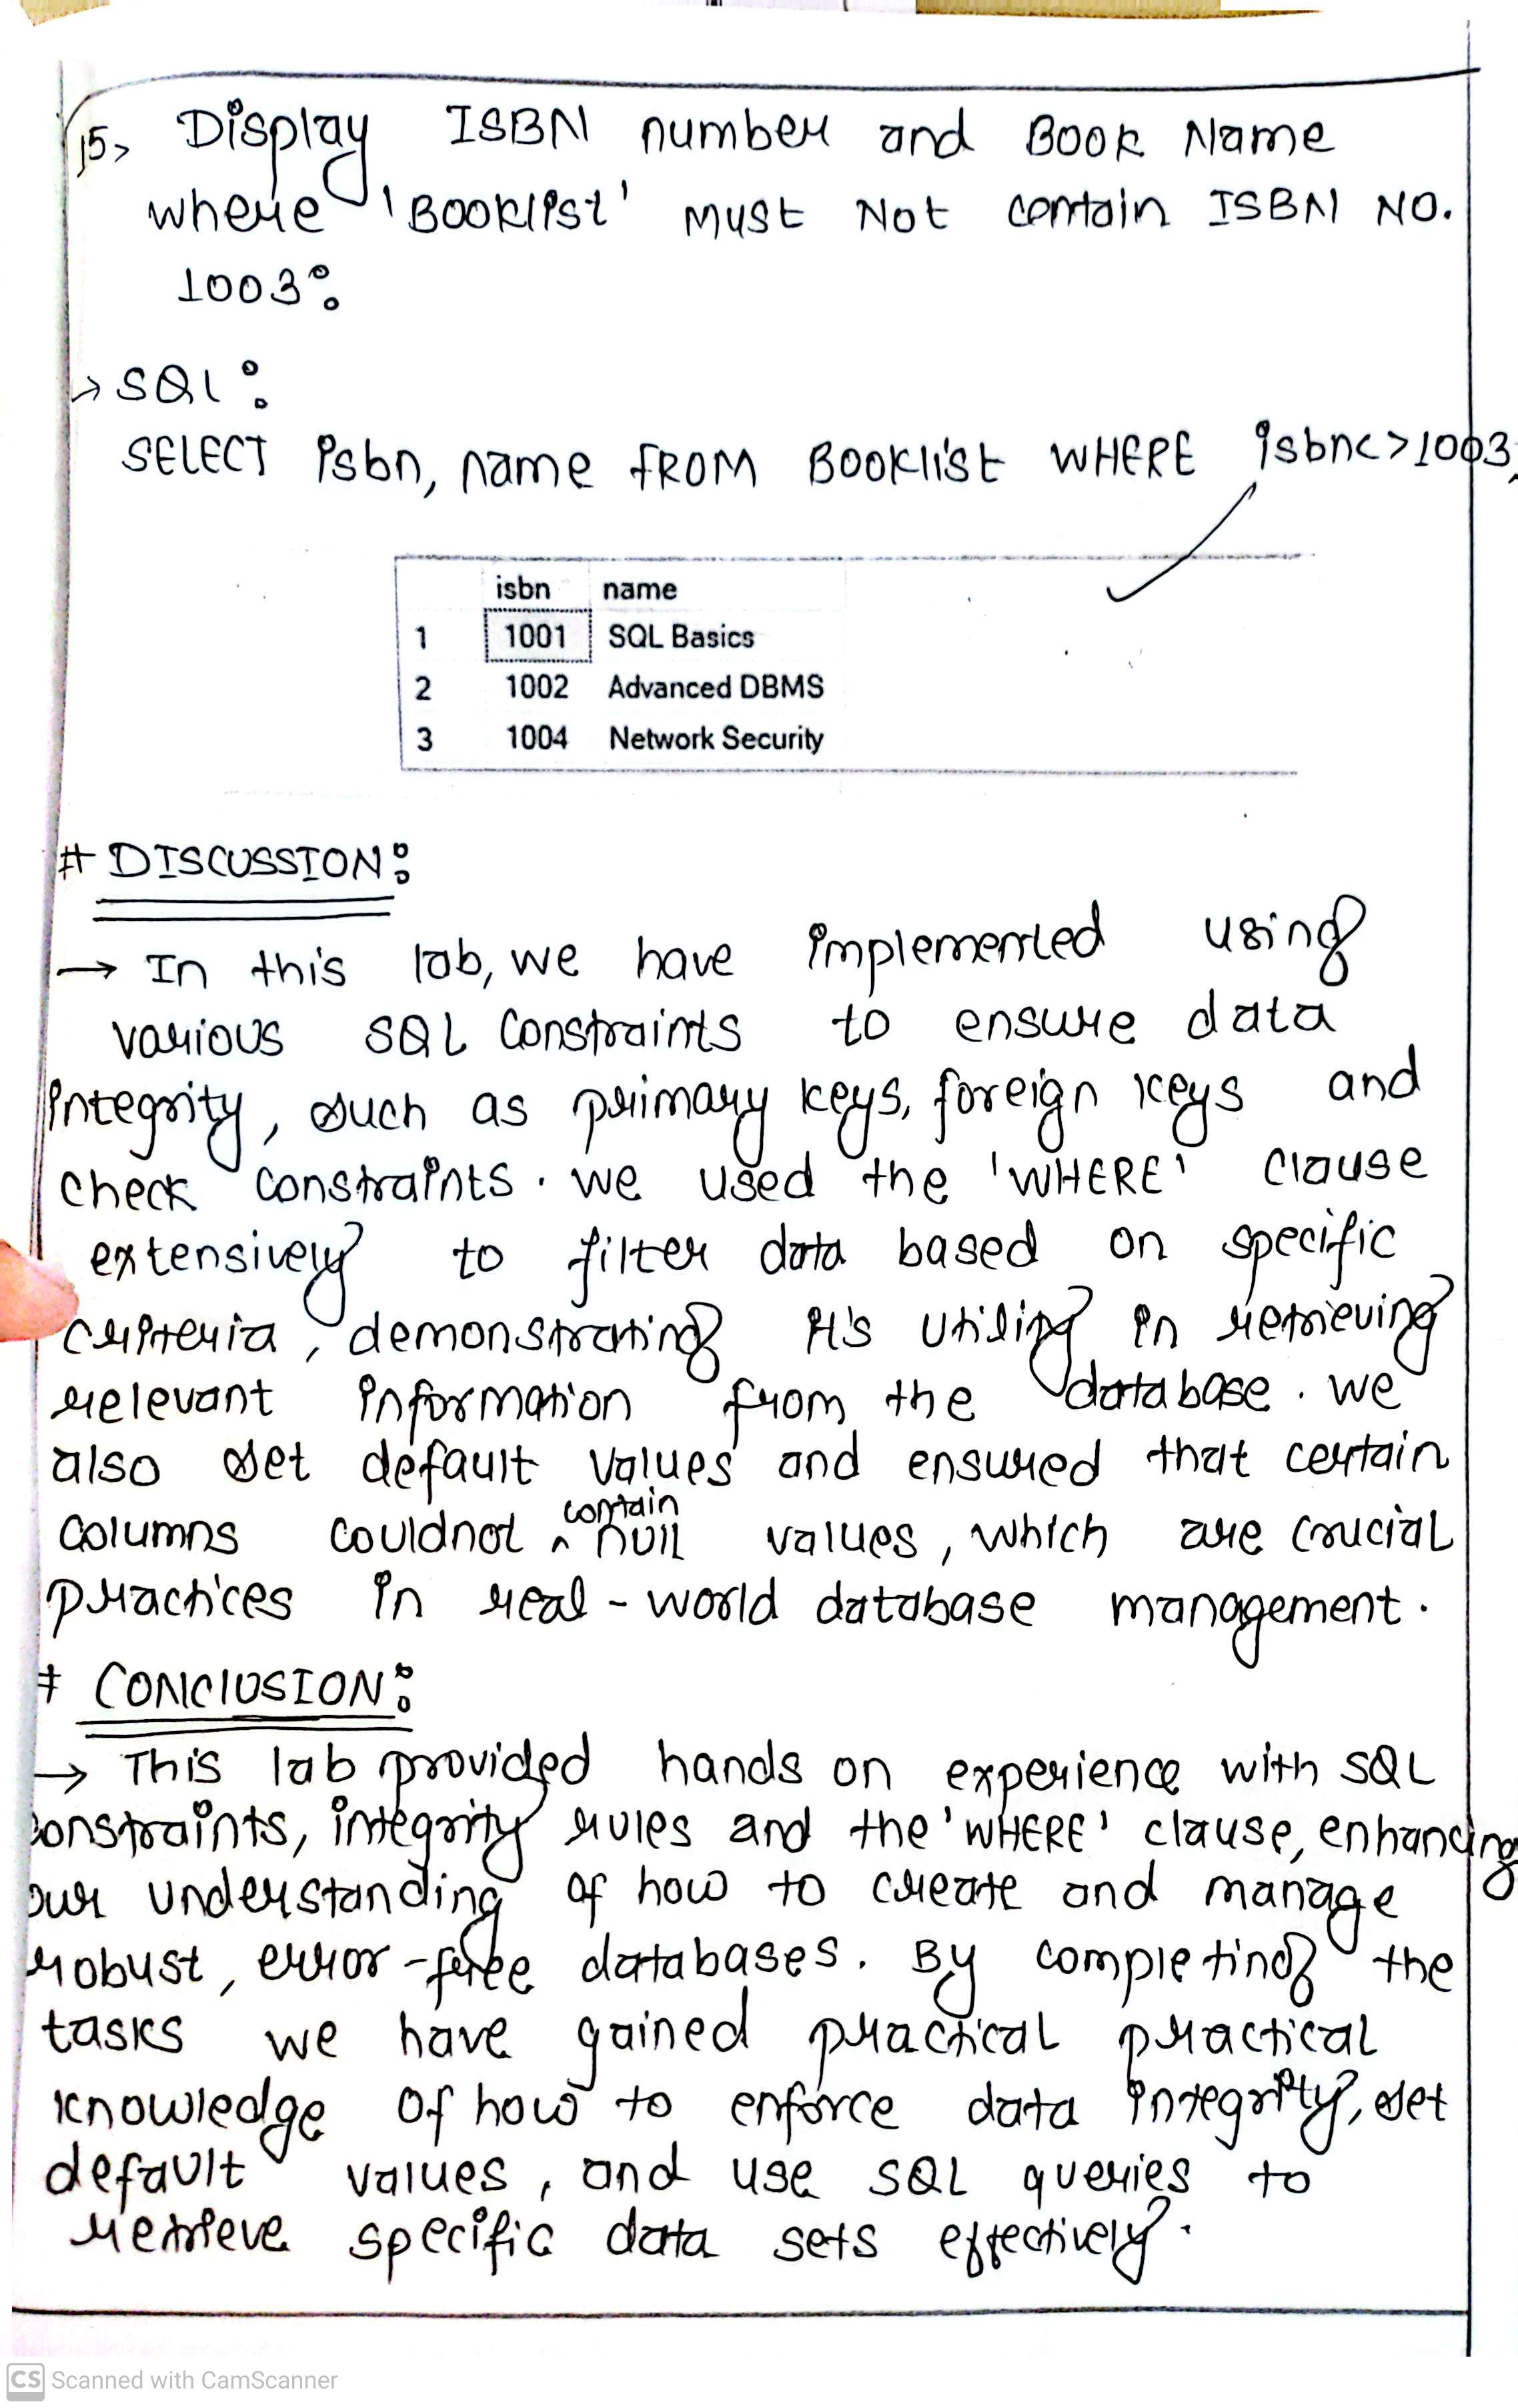 15> Display ISBN number and Book Name
where 'Booklist' must Not contain ISBN NO.
1003:
→ SQL:
SELECT isbn, name FROM Booklist WHERE isbn<>1003;
isbn name
1 1001 SQL Basics
2 1002 Advanced DBMS
3 1004 Network Security
# DISCUSSION:
→ In this lab, we have implemented using
various SQL constraints to ensure data
integrity, such as primary keys, foreign keys and
check constraints. we used the 'WHERE' clause
extensively to filter data based on specific
criteria, demonstrating it's utility in retrieving
relevant information from the database. we
also set default values and ensured that certain
columns couldnot contain null values, which are crucial
practices in real-world database management.
# CONCLUSION:
→ This lab provided hands on experience with SQL
constraints, integrity rules and the 'WHERE' clause, enhancing
our understanding of how to create and manage
robust, error-free databases. By completing the
tasks we have gained practical practical
knowledge of how to enforce data integrity, set
default values, and use SQL queries to
retrieve specific data sets effectively.
CS Scanned with CamScanner